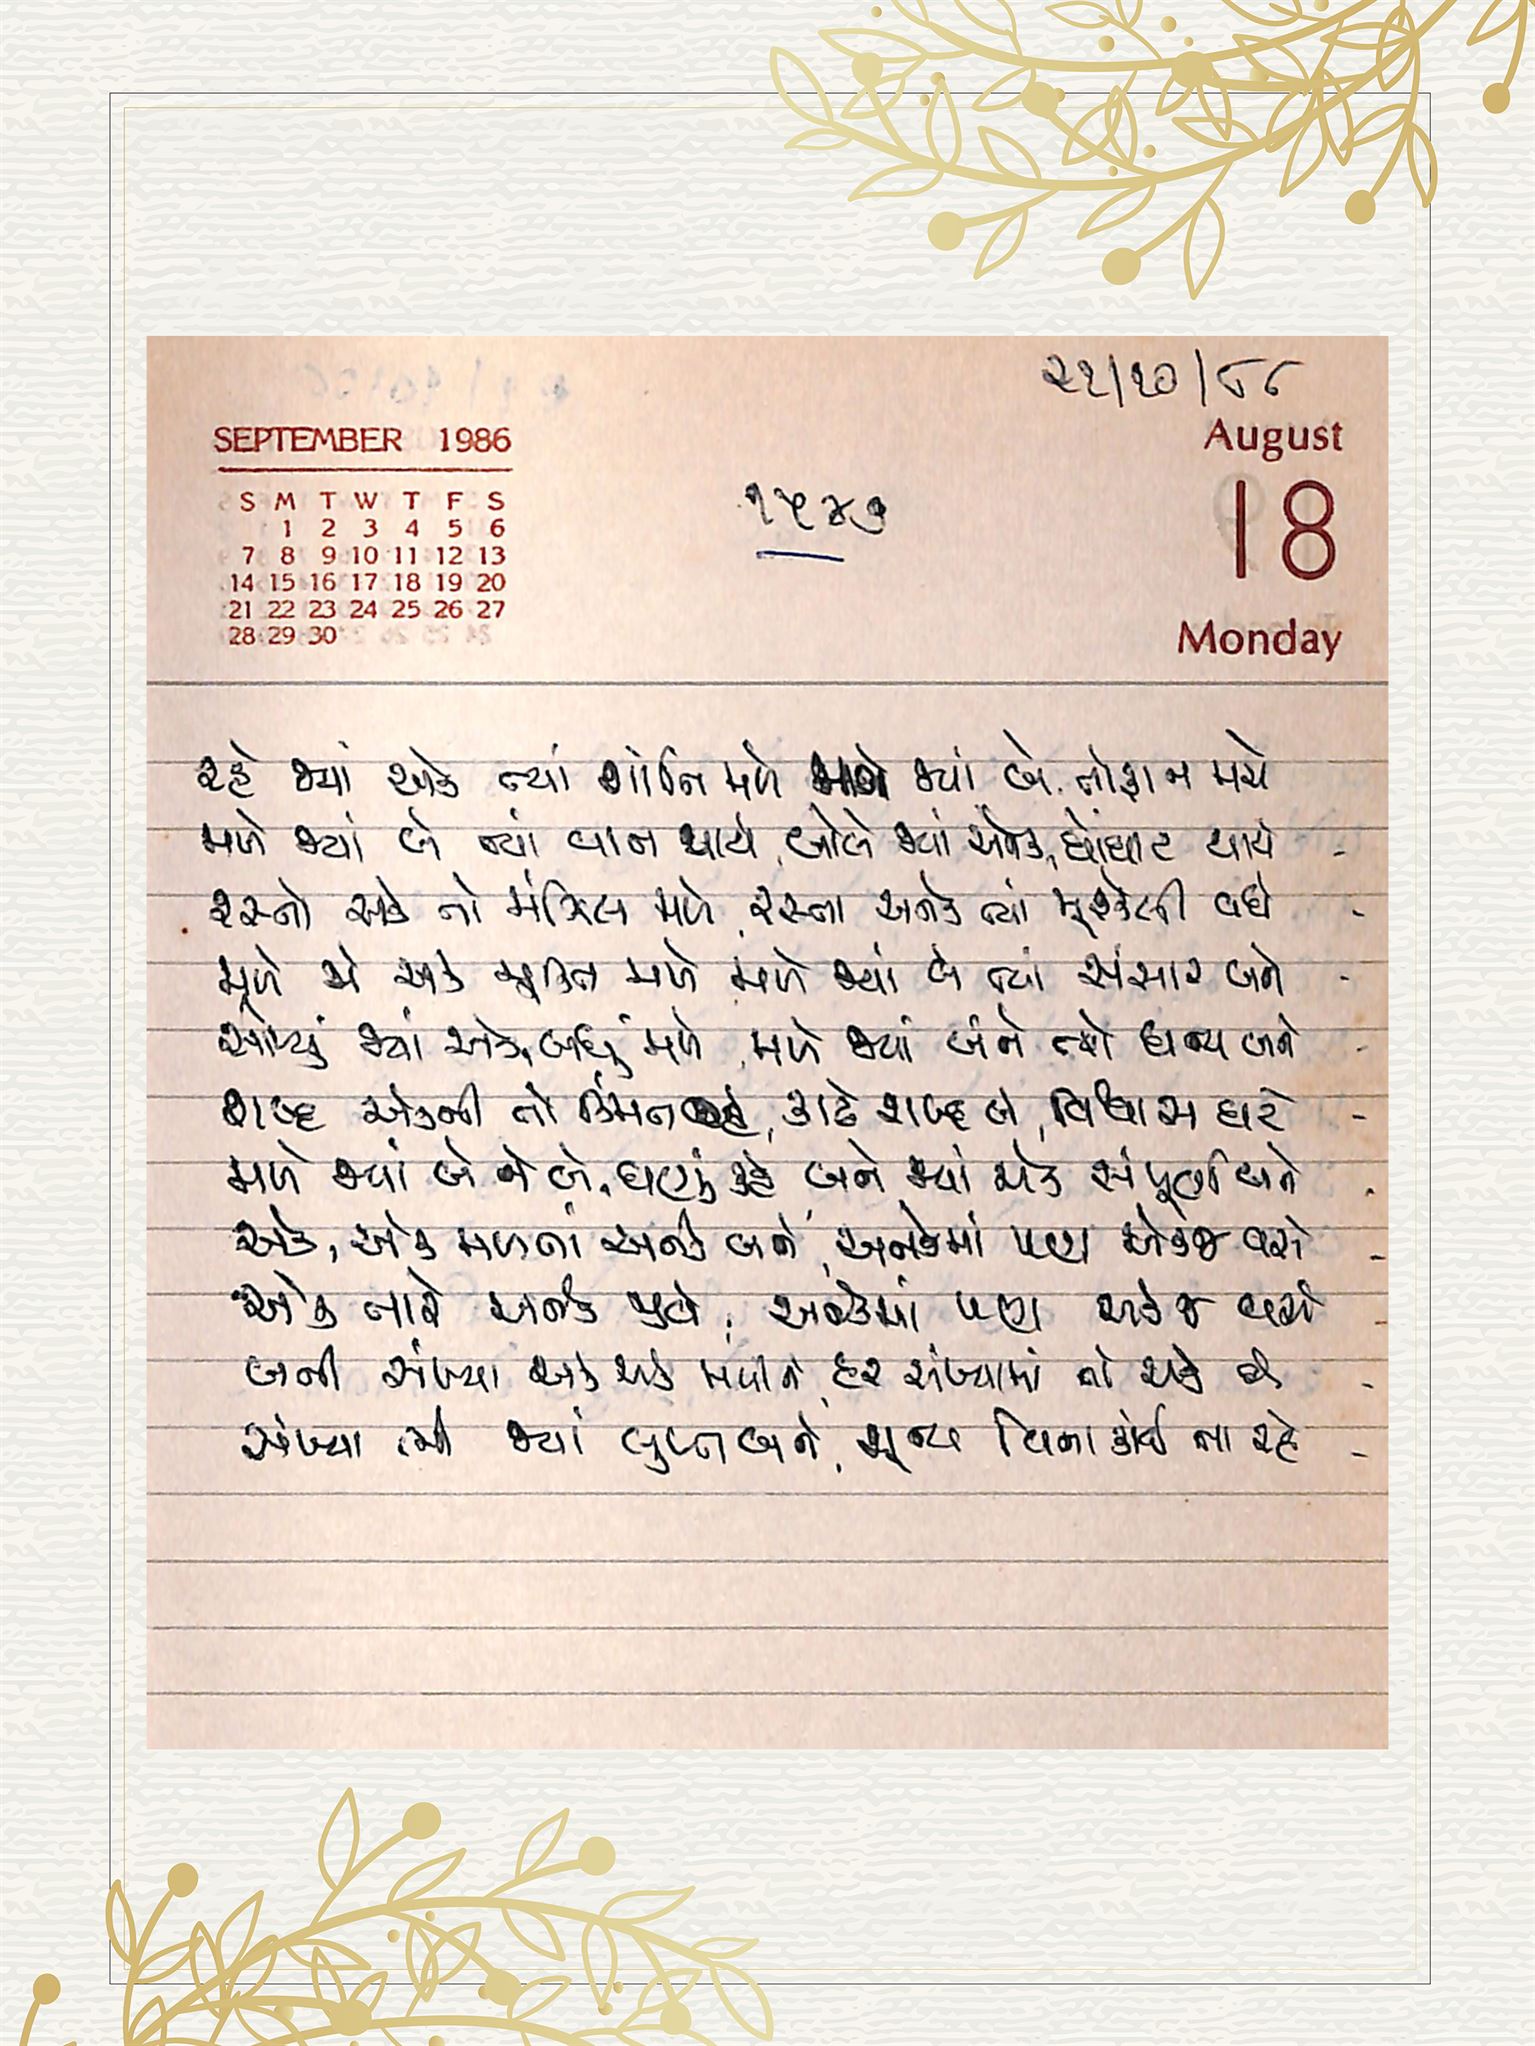 ૨૧/૧૦/૮૮
SEPTEMBER 1986
August
S M T W T F S
1 2 3 4 5 6
7 8 9 10 11 12 13
14 15 16 17 18 19 20
21 22 23 24 25 26 27
28 29 30
૧૫૪૭
18
Monday
રહે જ્યાં એક ત્યાં શાંતિ મળે જ્યાં બે તોફાન મચે
મળે જ્યાં બે ત્યાં વાત થાયે, બોલે જ્યાં અનેક, ઘોંઘાટ થાયે -
રસ્તો એક તો મંઝિલ મળે, રસ્તા અનેક ત્યાં મુશ્કેલી વધે -
મૂળે એક મુક્તિ મળે, મળે જ્યાં બે ત્યાં સંસાર બને -
સોંપ્યું જ્યાં એકે, બધું મળે, મળે જ્યાં બંને ત્યાં ધન્ય બને -
શબ્દ એકની તો કિંમત, કાઢે શબ્દ બે, વિશ્વાસ હારે -
મળે જ્યાં બે ને બે, ઘણું કહે, બને જ્યાં એક સંપૂર્ણ બને -
એક, એક મળતાં અનેક બને, અનેકમાં પણ એકજ વસે -
એક તારે અનેક, અનેકમાં પણ એકજ વસે -
બની સંખ્યા એક એક મળીને, હર સંખ્યામાં તો એક છે -
સંખ્યા જ્યાં લુપ્ત બને, શૂન્ય વિના કોઈ ના રહે -